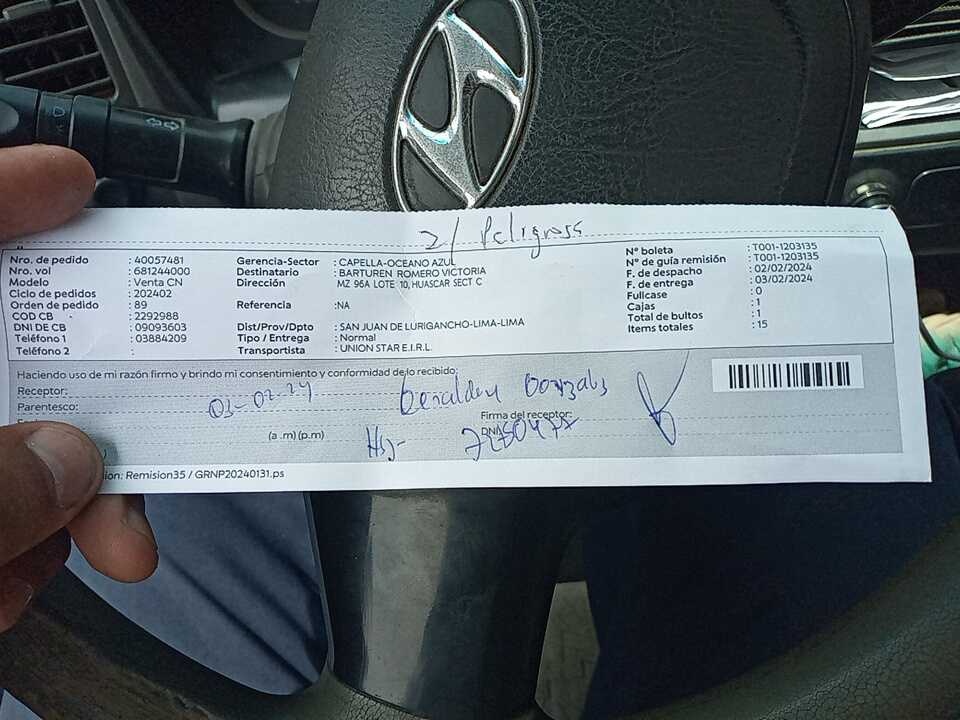 2/ Peligross
Nro. de pedido : 40057481
Nro. vol : 681244000
Modelo : Venta CN
Ciclo de pedidos : 202402
Orden de pedido : 89
COD CB : 2292988
DNI DE CB : 09093603
Teléfono 1 : 03884209
Teléfono 2 :
Gerencia-Sector : CAPELLA-OCEANO AZUL
Destinatario : BARTUREN ROMERO VICTORIA
Dirección MZ 96A LOTE 10, HUASCAR SECT C
Referencia :NA
Dist/Prov/Dpto : SAN JUAN DE LURIGANCHO-LIMA-LIMA
Tipo / Entrega : Normal
Transportista : UNION STAR E.I.R.L.
N° boleta : T001-1203135
N° de guía remisión : T001-1203135
F. de despacho : 02/02/2024
F. de entrega : 03/02/2024
Fullcase : 0
Cajas : 1
Total de bultos : 1
Items totales : 15
Haciendo uso de mi razón firmo y brindo mi consentimiento y conformidad de lo recibido:
Receptor:
Parentesco:
03-02-24
(a .m) (p.m)
Firma del receptor:
DNI
ion: Remision35 / GRNP20240131.ps